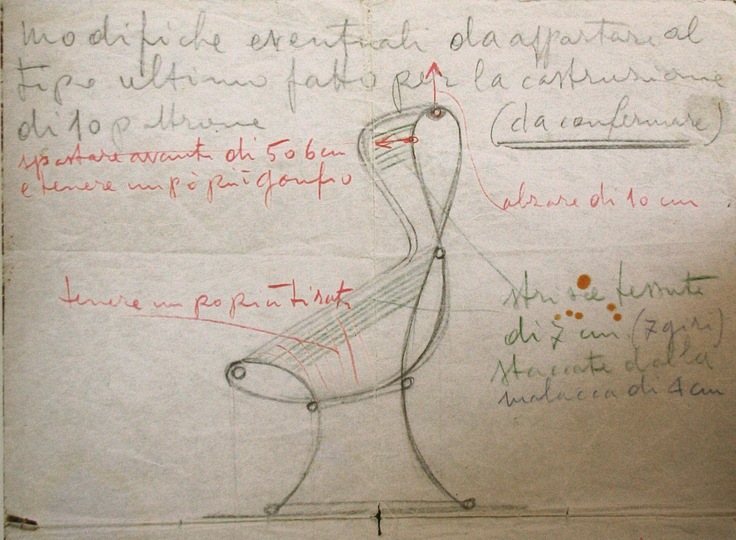 modifiche eventuali da apportare al
tipo ultimo fatto per la costruzione
di 10 poltrone
(da confermare)
spostare avanti di 5 o 6 cm
e tenere un pò più gonfio
alzare di 10 cm
tenere un po più tirata
strisce tessute
di 7 cm (7 giri)
staccate dalla
malacca di 4 cm